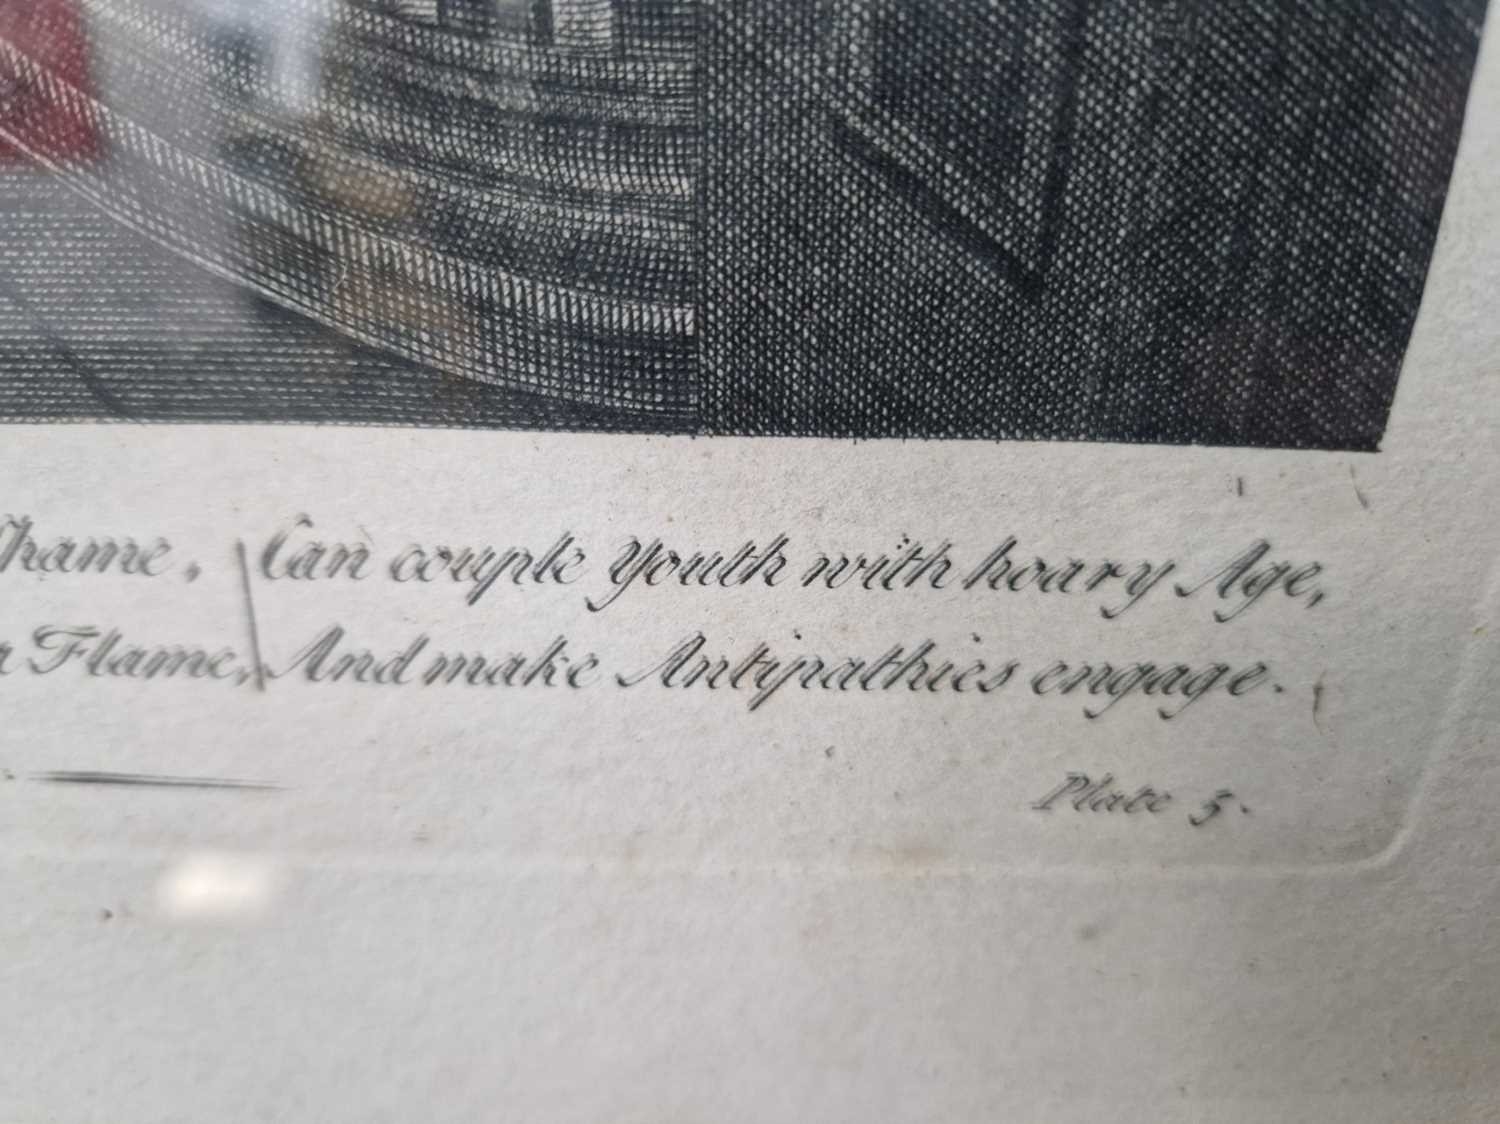 Shame, Can couple Youth with hoary Age,
Flame, And make Antipathies engage.
Plate 5.